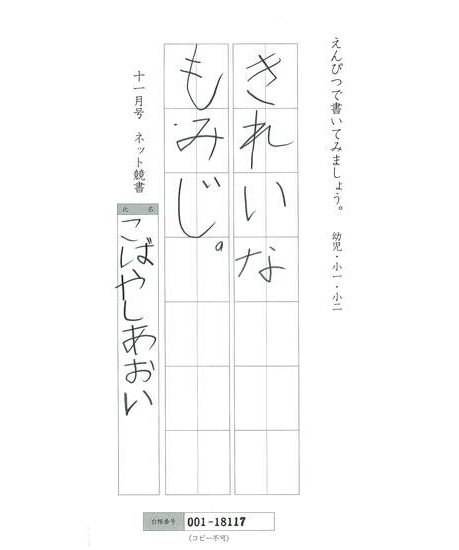 えんぴつで書いてみましょう。 幼児・小一・小二
きれいな
もみじ。
十一月号 ネット競書
氏名
こばやしあおい
台帳番号 001-18117
(コピー不可)